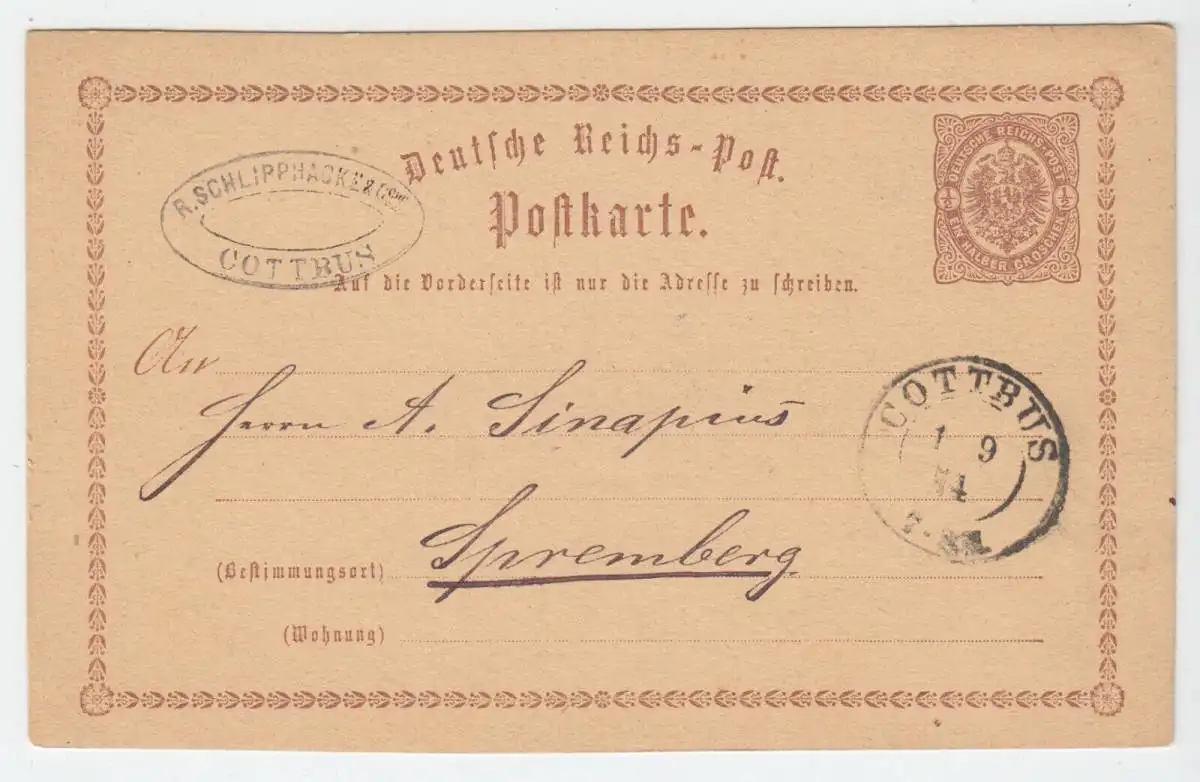 Deutsche Reichs-Post.
Postkarte.
R. SCHLIPPHACKE & Co
COTTBUS
DEUTSCHE REICHS-POST
½ ½
EIN HALBER GROSCHEN
Auf die Vorderseite ist nur die Adresse zu schreiben.
An
Herrn A. Sinapius
COTTBUS
1 9
74
Spremberg
(Bestimmungsort)
(Wohnung)